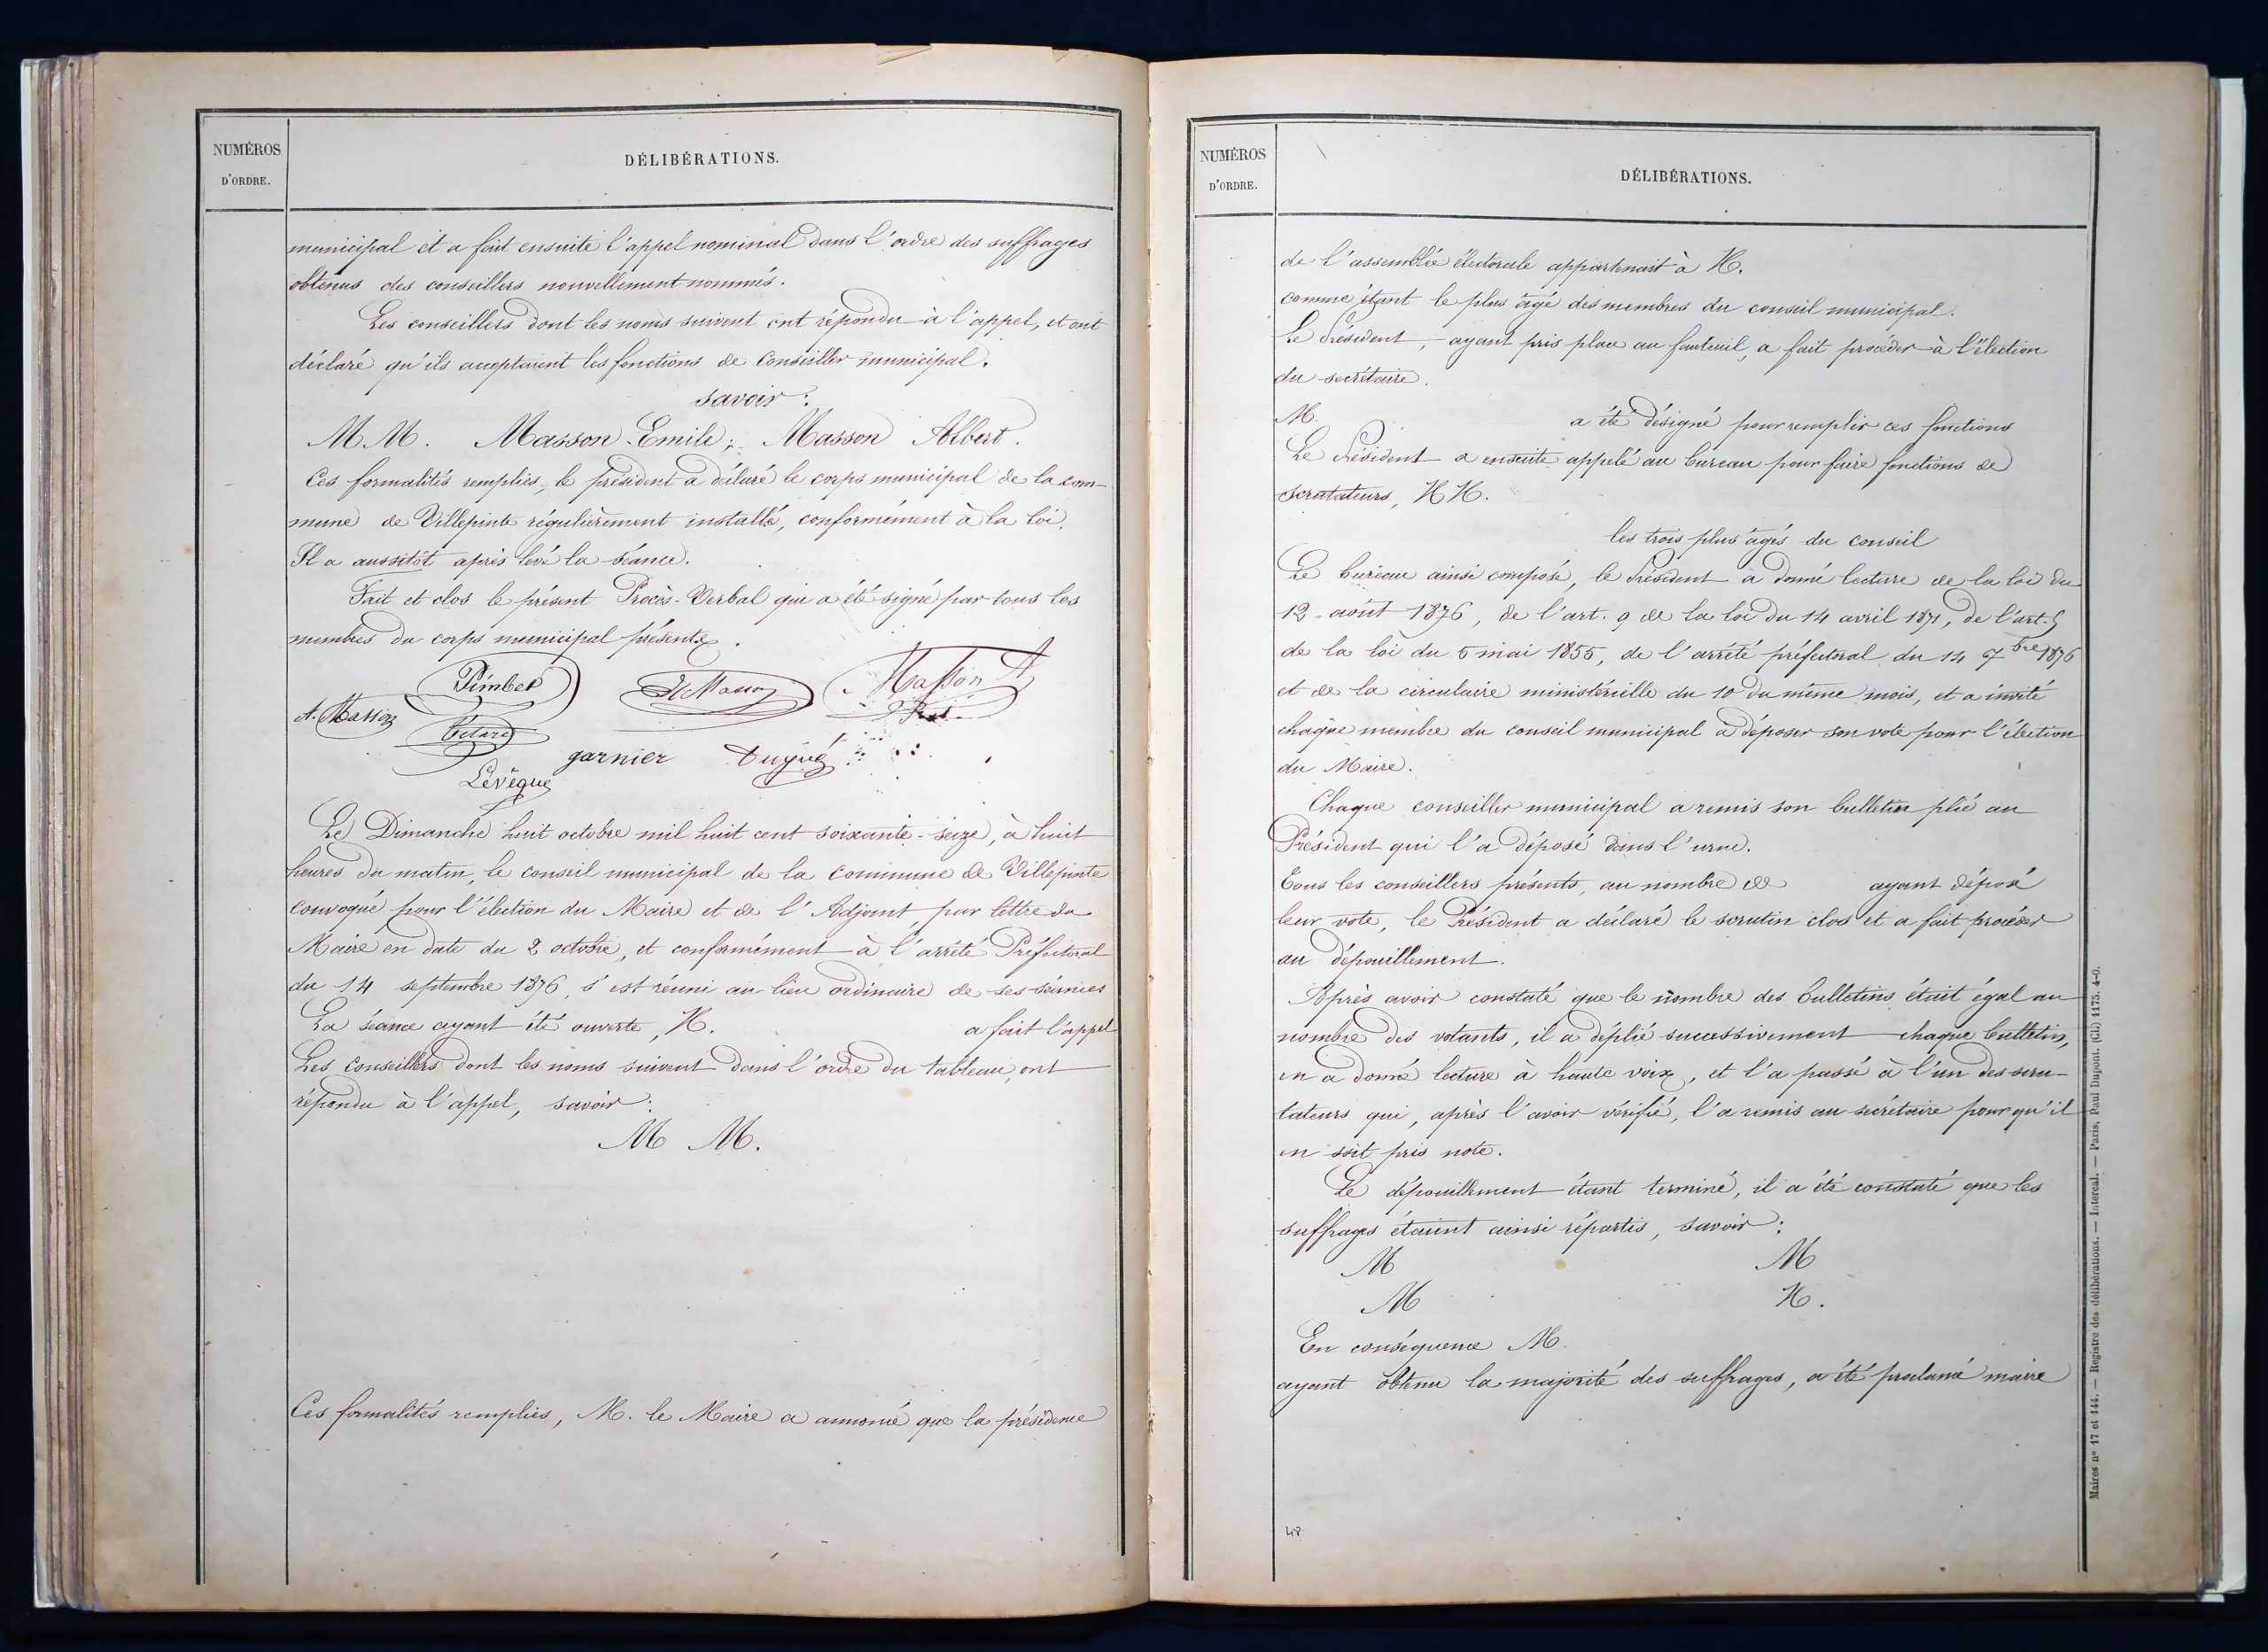 NUMÉROS
D'ORDRE.
DÉLIBÉRATIONS.
municipal et a fait ensuite l'appel nominal dans l'ordre des suffrages
obtenus des conseillers nouvellement nommés.
Les conseillers dont les noms suivent ont répondu à l'appel, et ont
déclaré qu'ils acceptaient les fonctions de Conseiller municipal.
savoir :
M.M. Masson Emile ; Masson Albert.
Ces formalités remplies, le président a déclaré le corps municipal de la com-
mune de Villepinte régulièrement installé, conformément à la loi.
Il a aussitôt après levé la séance.
Fait et clos le présent Procès-Verbal qui a été signé par tous les
membres du corps municipal présents.
Pimber E Masson Masson A
A. Masson
garnier Duqué
Levêque
Le Dimanche huit octobre mil huit cent soixante-seize, à huit
heures du matin, le conseil municipal de la commune de Villepinte
convoqué pour l'élection du Maire et de l'Adjoint, par lettre du
Maire en date du 2 octobre, et conformément à l'arrêté Préfectoral
du 14 septembre 1876, s'est réuni au lieu ordinaire de ses séances
La séance ayant été ouverte, M. a fait l'appel
Les Conseillers dont les noms suivent dans l'ordre du tableau, ont
répondu à l'appel, savoir :
M M.
Ces formalités remplies, M. le Maire a annoncé que la présidence
NUMÉROS
D'ORDRE.
DÉLIBÉRATIONS.
de l'assemblée électorale appartenait à M.
comme étant le plus âgé des membres du conseil municipal.
Le Président, ayant pris place au fauteuil, a fait procéder à l'élection
du secrétaire.
M. a été désigné pour remplir ces fonctions
Le Président a ensuite appelé au bureau pour faire fonctions de
scrutateurs, MM.
les trois plus âgés du conseil
Le bureau ainsi composé, le Président a donné lecture de la loi du
12 août 1876, de l'art. 9 de la loi du 14 avril 1871, de l'art. 5
de la loi du 5 mai 1855, de l'arrêté préfectoral du 14 7bre 1876
et de la circulaire ministérielle du 10 du même mois, et a invité
chaque membre du conseil municipal à déposer son vote pour l'élection
du Maire.
Chaque conseiller municipal a remis son bulletin plié au
Président qui l'a déposé dans l'urne.
Tous les conseillers présents, au nombre de ayant déposé
leur vote, le Président a déclaré le scrutin clos et a fait procéder
au dépouillement.
Après avoir constaté que le nombre des bulletins était égal au
nombre des votants, il a déplié successivement chaque bulletin,
en a donné lecture à haute voix, et l'a passé à l'un des scru-
tateurs qui, après l'avoir vérifié, l'a remis au secrétaire pour qu'il
en soit pris note.
Le dépouillement étant terminé, il a été constaté que les
suffrages étaient ainsi répartis, savoir :
M M
M M.
En conséquence M.
ayant obtenu la majorité des suffrages, a été proclamé maire
48.
Maires nos 17 et 144. — Registre des délibérations. — Intercal. — Paris, Paul Dupont. (Cl.) 1175. 4-0.